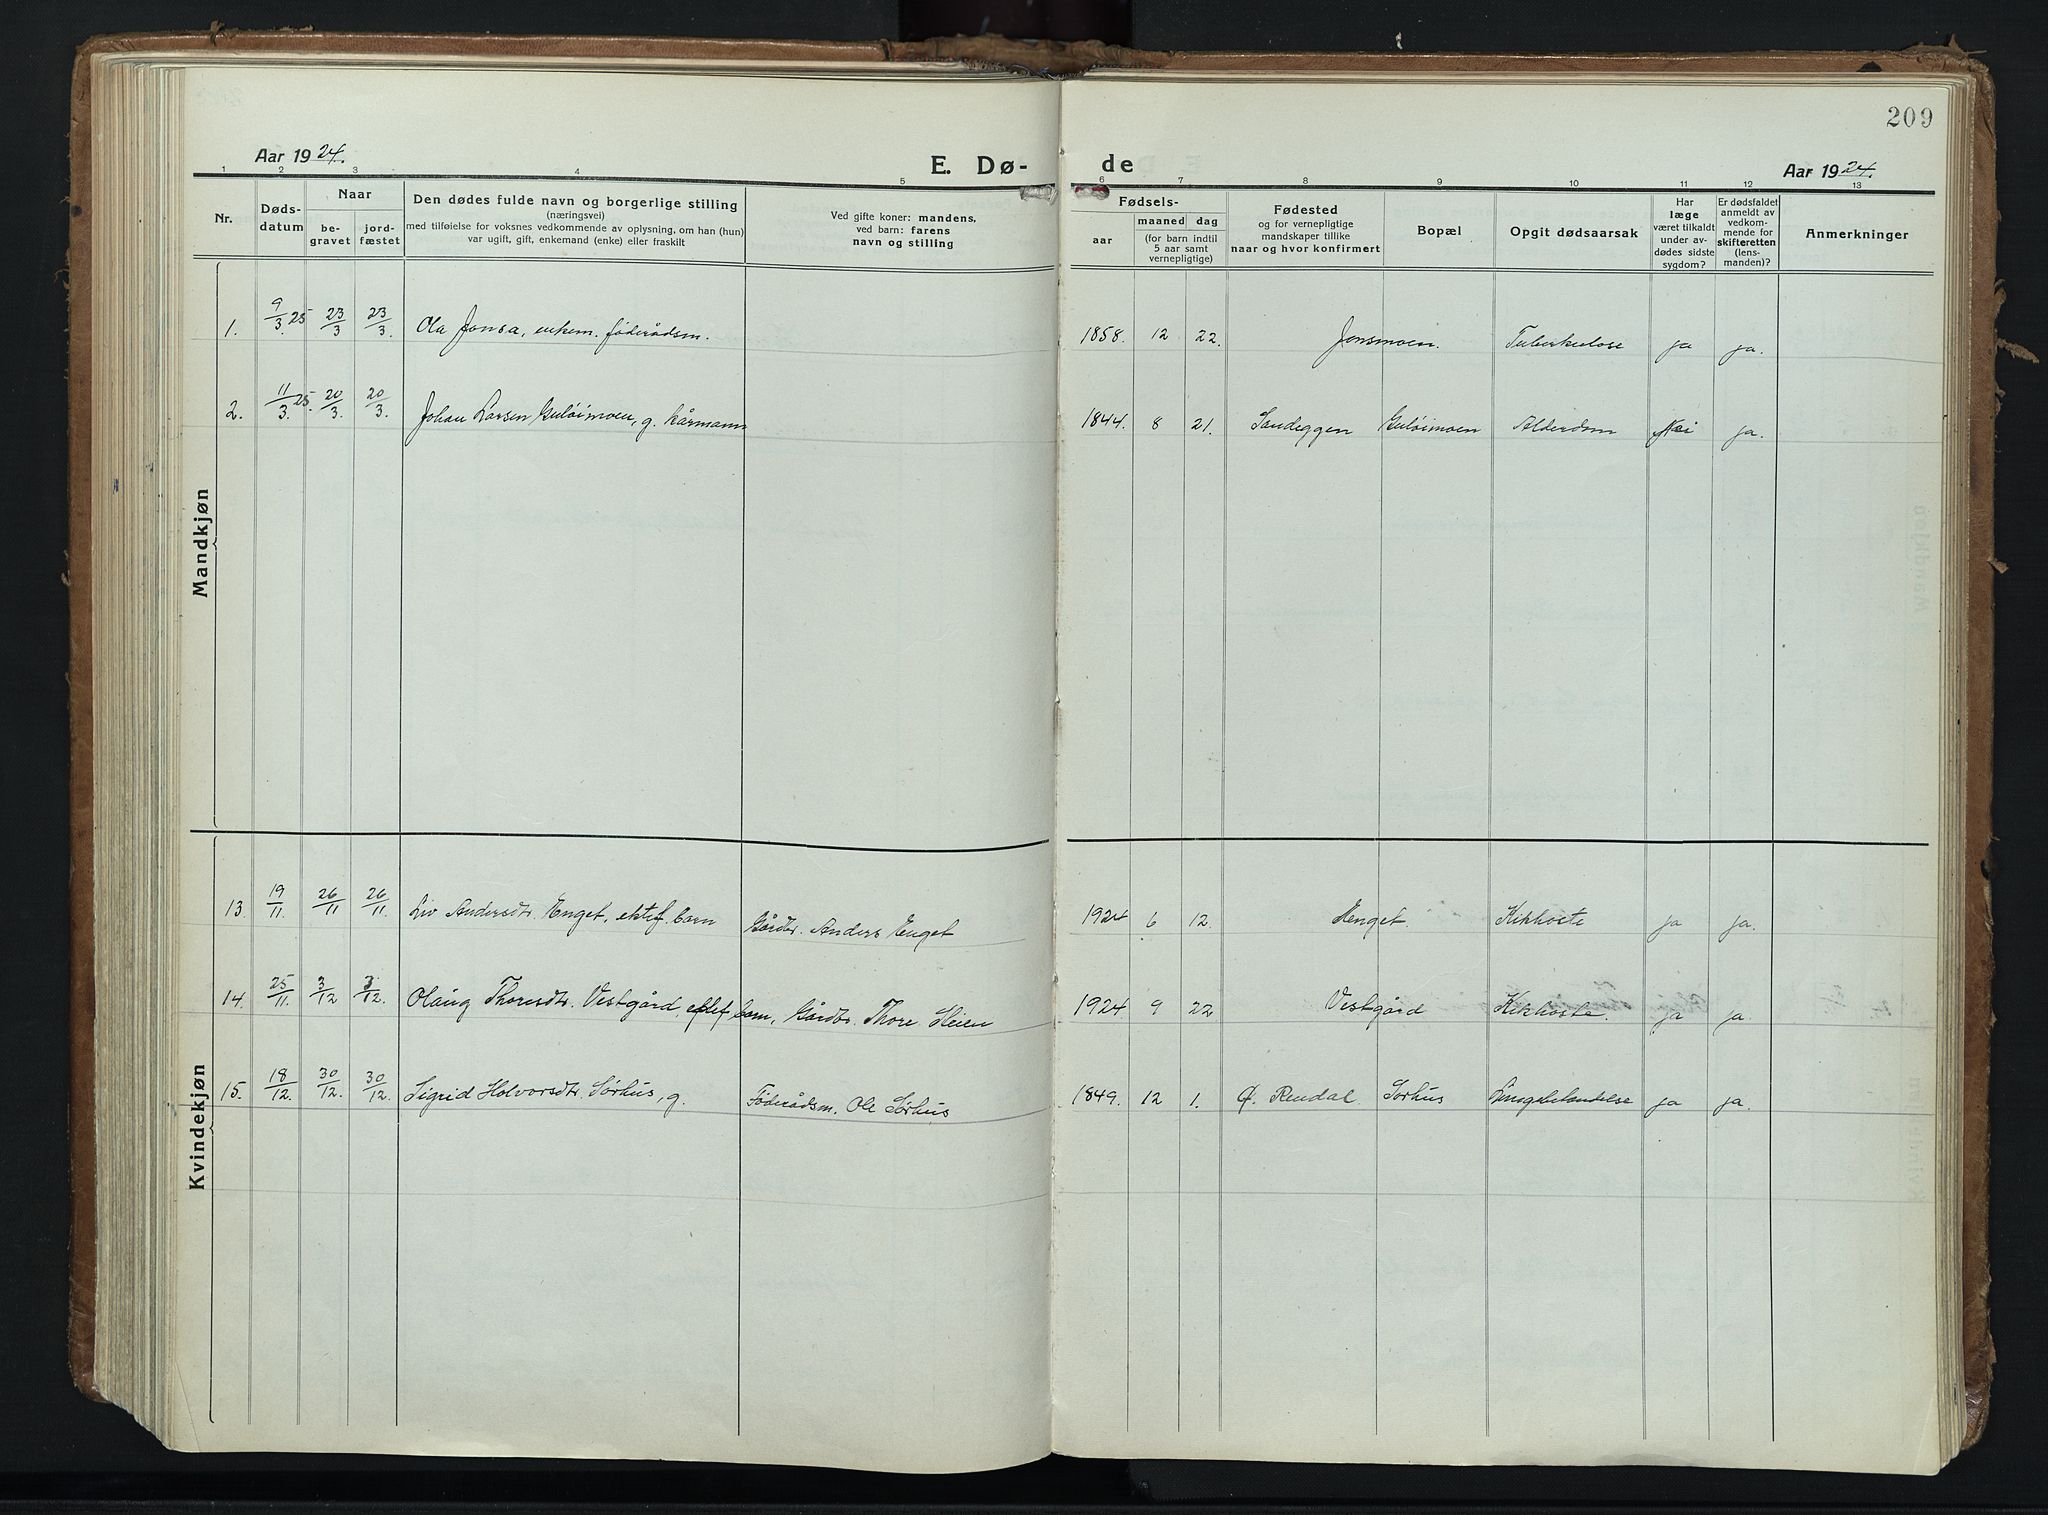 209
Aar 1924.
E. Dø-
de
Aar 1924.
1 2 3 4 5 6 7 8 9 10 11 12 13
Nr.
Døds-
datum
Naar
be-
gravet
jord-
fæstet
Den dødes fulde navn og borgerlige stilling
(næringsvei)
med tilføielse for voksnes vedkommende av oplysning, om han (hun)
var ugift, gift, enkemand (enke) eller fraskilt
Ved gifte koner: mandens,
ved barn: farens
navn og stilling
Fødsels-
aar
maaned dag
(for barn indtil
5 aar samt
vernepligtige)
Fødested
og for vernepligtige
mandskaper tillike
naar og hvor konfirmert
Bopæl
Opgit dødsaarsak
Har
læge
været tilkaldt
under av-
dødes sidste
sygdom?
Er dødsfaldet
anmeldt av
vedkom-
mende for
skifteretten
(lens-
manden)?
Anmerkninger
Mandkjøn
1. 9/3. 25 23/3 23/3. Ola Jonsa, enkem. føderådsm. 1858. 12 22. Jonsmoen. Tuberkulose ja ja.
2. 11/3. 25. 20/3. 20/3. Johan Larsen Guløimoen, g. kårmann 1844. 8 21. Sandeggen Guløimoen Alderdom Nei ja.
Kvindekjøn
13. 19/11. 26/11 26/11. Liv Andersdtr. Enget, ektef. barn Gårdbr. Anders Enget 1924 6 12. Henget. Kikhoste ja ja.
14. 25/11. 3/12 3/12. Olaug Thoresdtr. Vestgård, ektef. barn, Gårdbr. Thore Heien 1924 9 22 Vestgård Kikhoste. ja ja.
15. 18/12. 30/12. 30/12. Sigrid Halvorsdtr. Sørhus, g. Føderådsm. Ole Sørhus 1849. 12 1. Ø. Rendal. Sørhus Lungebetændelse ja ja.